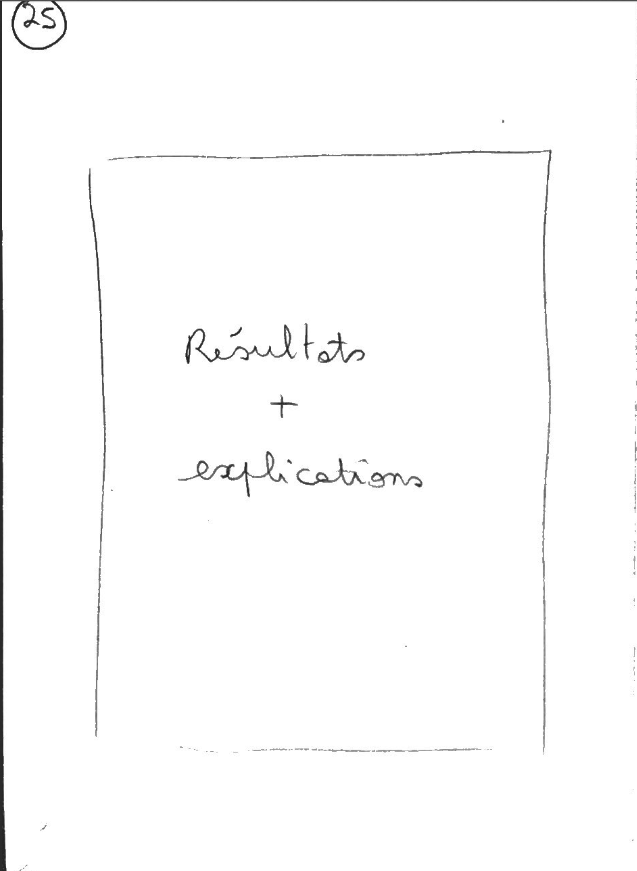 25
Résultats
+
explications